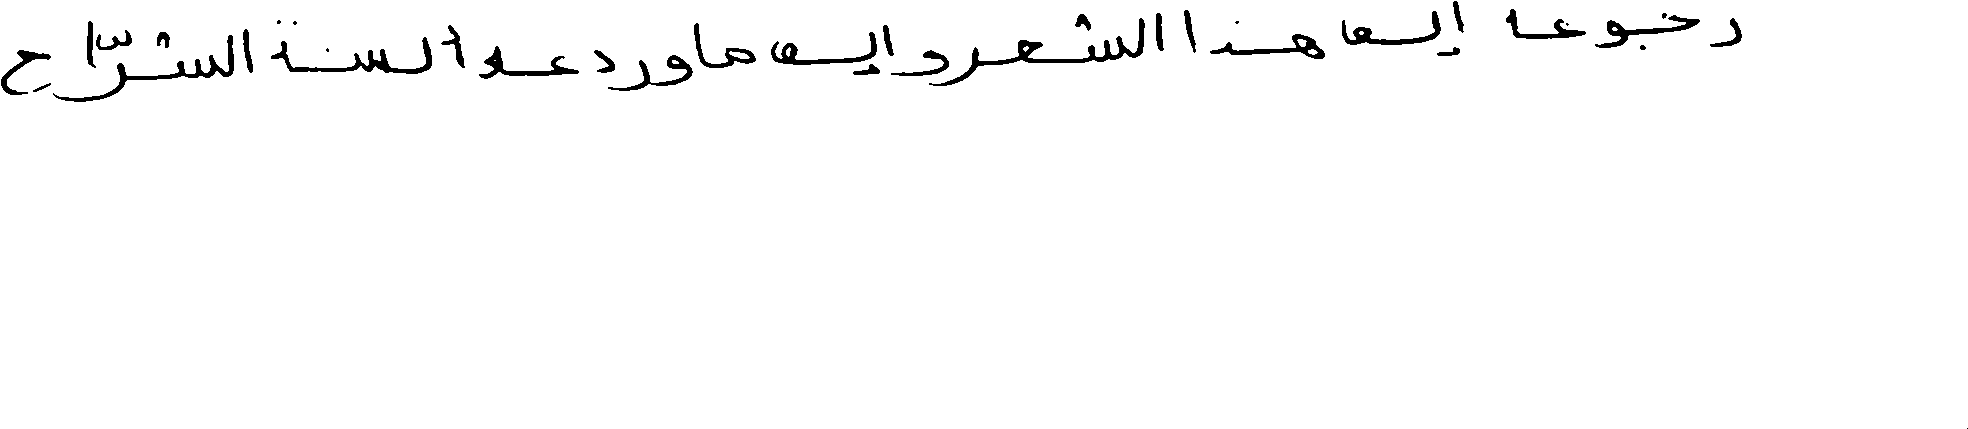 رجوعه إلى هذا الشعر وإلى ما ورد على ألسنة الشرّاح